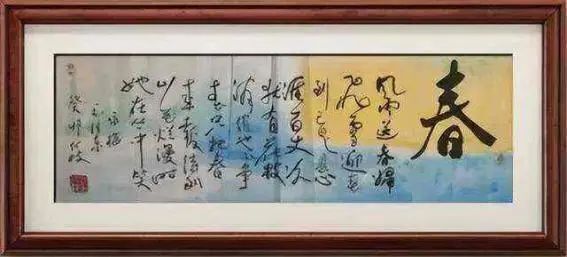 春
風雨送春歸
飛雪迎春
到已是悬
崖百丈冰
犹有花枝
俏俏也不争
春只把春
来报待到
山花烂漫时
她在丛中笑
咏梅
毛泽东
癸卯